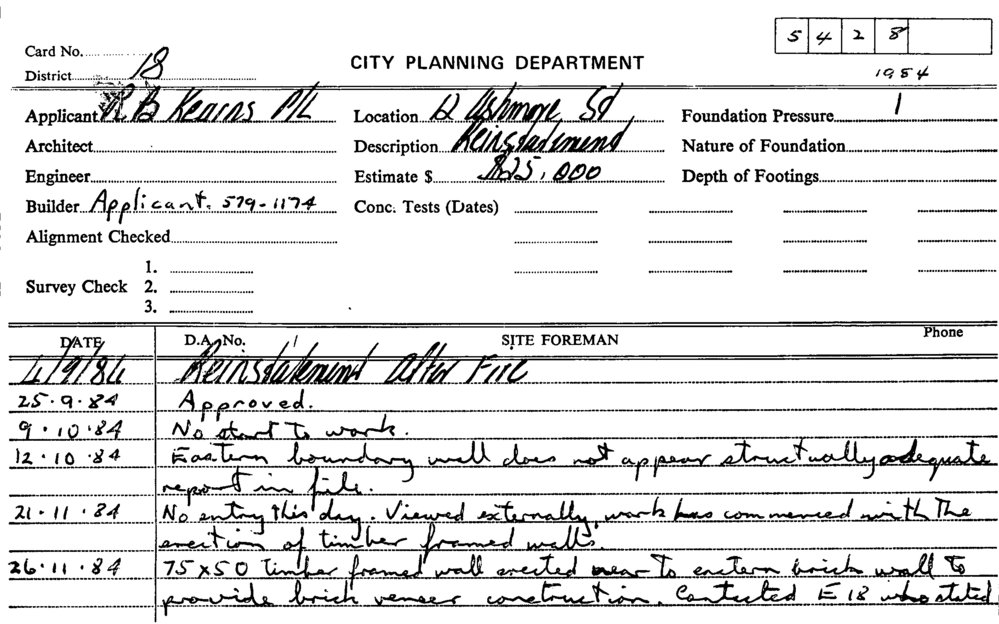 5 4 2 8
Card No.
CITY PLANNING DEPARTMENT
District 18
1984
Applicant R B Kearns P/L Location Ashmore St Foundation Pressure 1
Architect Description Reinstatement Nature of Foundation
Engineer Estimate $ $25,000 Depth of Footings
Builder Applicant. 579-1174 Conc. Tests (Dates)
Alignment Checked
1.
Survey Check 2.
3.
DATE D.A. No. SITE FOREMAN Phone
4/9/84 Reinstatement After Fire
25.9.84 Approved.
9.10.84 No start to work.
12.10.84 Eastern boundary wall does not appear structurally adequate
report in file.
21.11.84 No entry this day. Viewed externally, work has commenced with the
erection of timber framed walls.
26.11.84 75x50 timber framed wall erected near to eastern brick wall to
provide brick veneer construction. Contacted E18 who stated